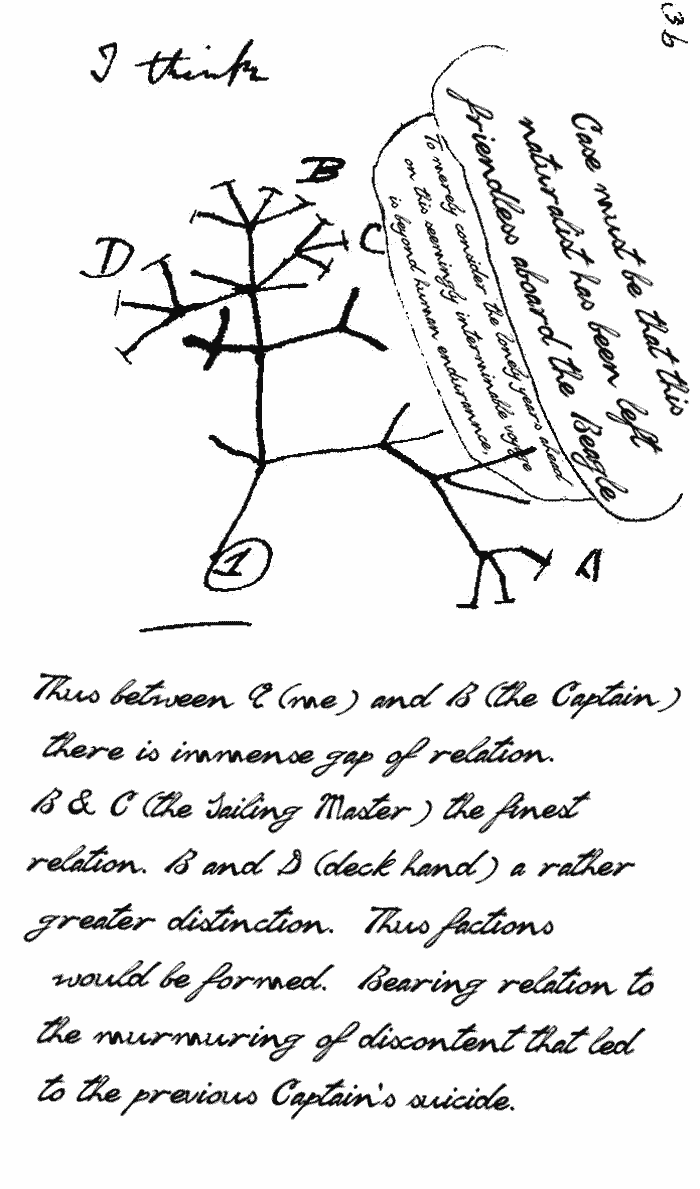 36
I think
Case must be that this
naturalist has been left
friendless aboard the Beagle
To merely consider the lonely years ahead
on this seemingly interminable voyage
is beyond human endurannce,
B
C
D
A
1
Thus between A (me) and B (the Captain)
there is immense gap of relation.
B & C (the Sailing Master) the finest
relation. B and D (deck hand) a rather
greater distinction. Thus factions
would be formed. Bearing relation to
the murmuring of discontent that led
to the previous Captain's suicide.